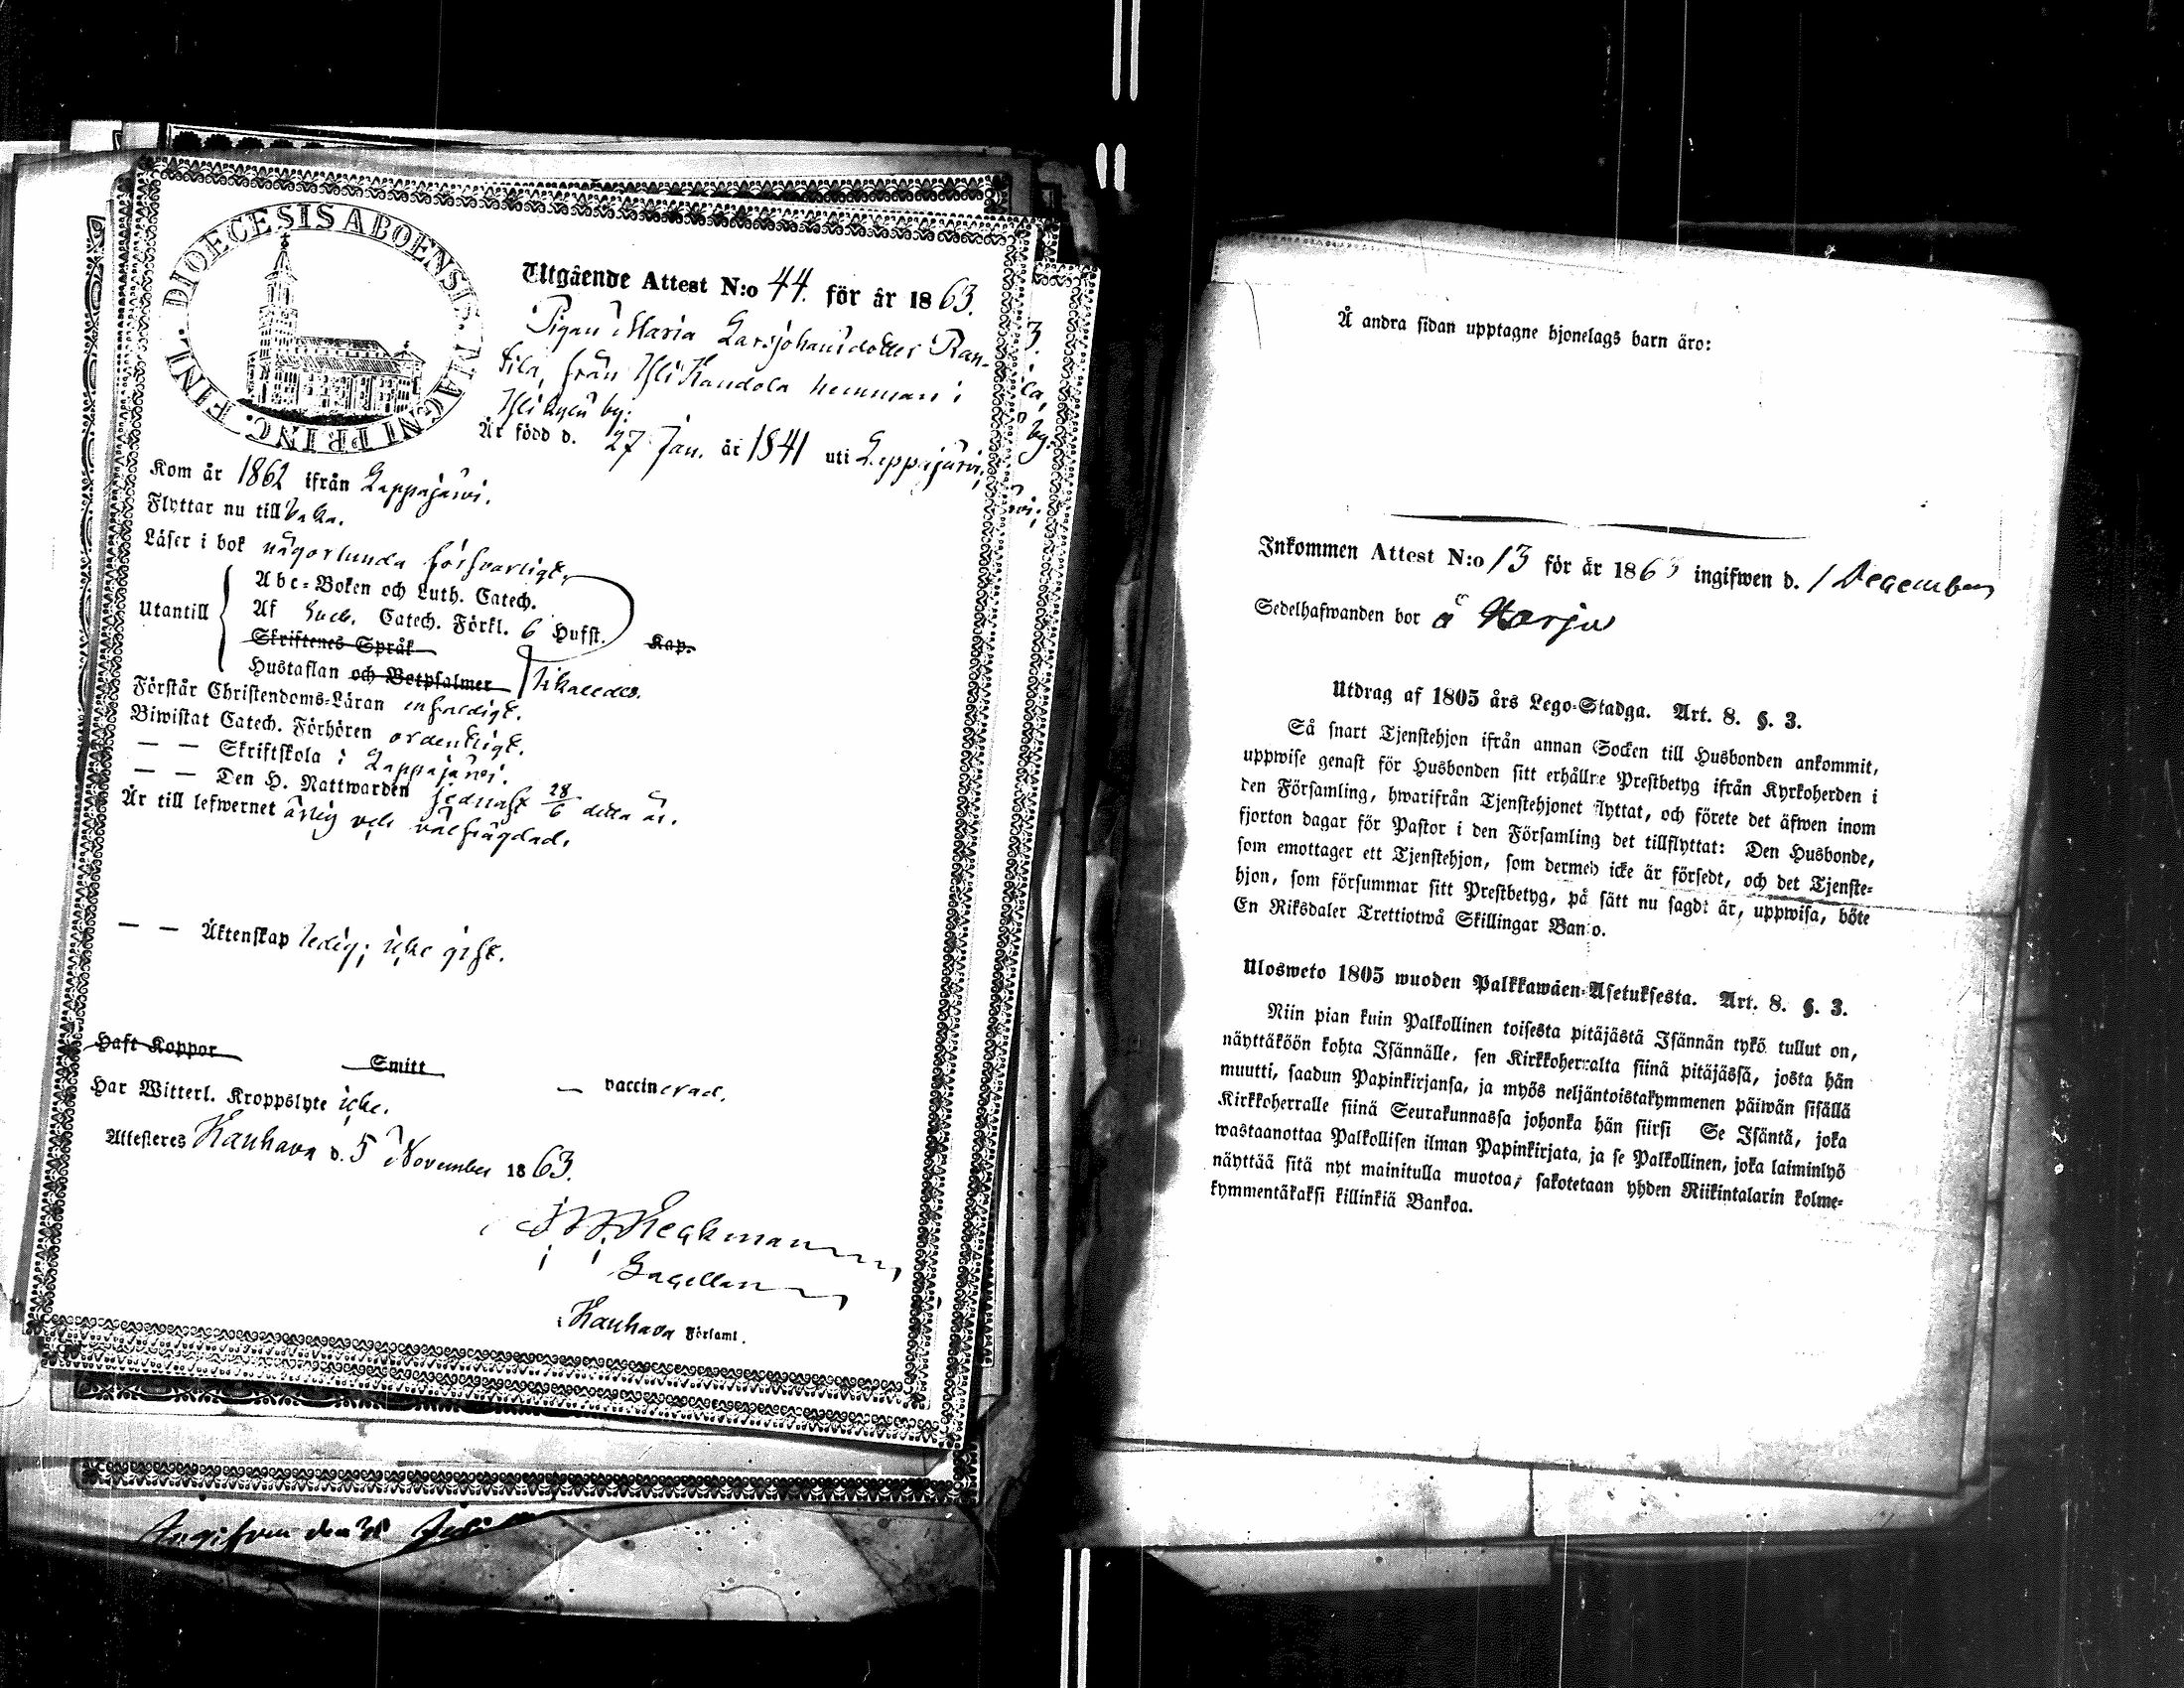 DIOECESIS ABOENSIS. MAGNI PRINC. FINL.
Utgående Attest N:o 44. för år 1863.
Pigan Maria Larsjohansdotter Ran-
tila, från Yli Kaudola hemman i
Ylikylä by.
Är född d. 27 Jan. år 1841 uti Lappajärvi,
Kom år 1862 ifrån Lappajärvi.
Flyttar nu tillbaka.
Läser i bok någorlunda försvarligt,
Utantill
Abc-Boken och Luth. Catech.
Af Catech. Förkl. 6 Hufst. Kap.
Skriftenes Språk
Hustaflan och Botpsalmer likaledes.
Förstår Christendoms-Läran enfaldigt.
Biwistat Catech. Förhören ordentligt.
— — Skriftskola i Lappajärvi.
— — Den H. Nattwarden sednast 28/6 detta år.
Är till lefwernet ärlig och välfrägdad.
— — Äktenskap ledig; icke gift.
Haft Koppor Smitt — vaccinerad.
Har Witterl. Kroppslyte icke.
Attesteres Kauhava d. 5 November 1863.
Heckman
Kauhava Församl.
Ingifven den
Å andra sidan upptagne hjonelags barn äro:
Inkommen Attest N:o 13 för år 1863 ingifwen d. 1 December
Sedelhafwanden bor å Harju
Utdrag af 1805 års Lego-Stadga. Art. 8. §. 3.
Så snart Tjenstehjon ifrån annan Socken till Husbonden ankommit,
uppwise genast för Husbonden sitt erhållne Prestbetyg ifrån Kyrkoherden i
den Församling, hwarifrån Tjenstehjonet flyttat, och förete det äfwen inom
fjorton dagar för Pastor i den Församling det tillflyttat: Den Husbonde,
som emottager ett Tjenstehjon, som dermed icke är försedt, och det Tjenste-
hjon, som försummar sitt Prestbetyg, på sätt nu sagdt är, uppwisa, böte
En Riksdaler Trettiotwå Skillingar Banco.
Ulosweto 1805 wuoden Palkkawäen-Asetuksesta. Art. 8. §. 3.
Niin pian kuin Palkollinen toisesta pitäjästä Isännän tykö tullut on,
näyttäköön kohta Isännälle, sen Kirkkoherralta siinä pitäjässä, josta hän
muutti, saadun Papinkirjansa, ja myös neljäntoistakymmenen päiwän sisällä
Kirkkoherralle siinä Seurakunnassa johonka hän siirsi Se Isäntä, joka
wastaanottaa Palkollisen ilman Papinkirjata, ja se Palkollinen, joka laiminlyö
näyttää sitä nyt mainitulla muotoa, sakotetaan yhden Riikintalarin kolme-
kymmentäkaksi killinkiä Bankoa.